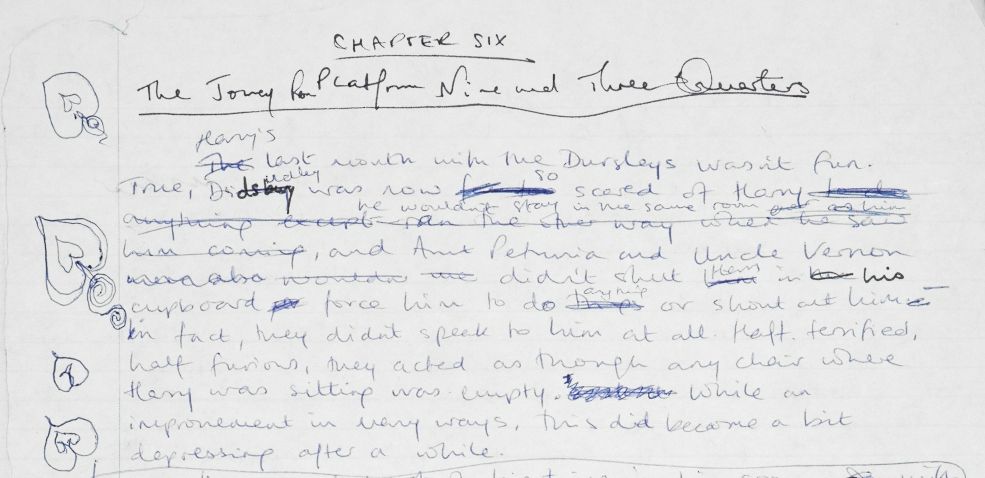 CHAPTER SIX
The Journey from Platform Nine and Three Quarters
Harry's
The last month with the Dursleys wasn't fun.
Dudley so
True, Didsbury was now scared of Harry
he wouldn't stay in the same room as him
anything except run the other way when he saw
him coming, and Aunt Petunia and Uncle Vernon
were also wouldn't didn't shut Harry in his
anything
cupboard, force him to do things or shout at him –
in fact, they didn't speak to him at all. Half terrified,
half furious, they acted as though any chair where
Harry was sitting was empty. While an
improvement in many ways, this did become a bit
depressing after a while.